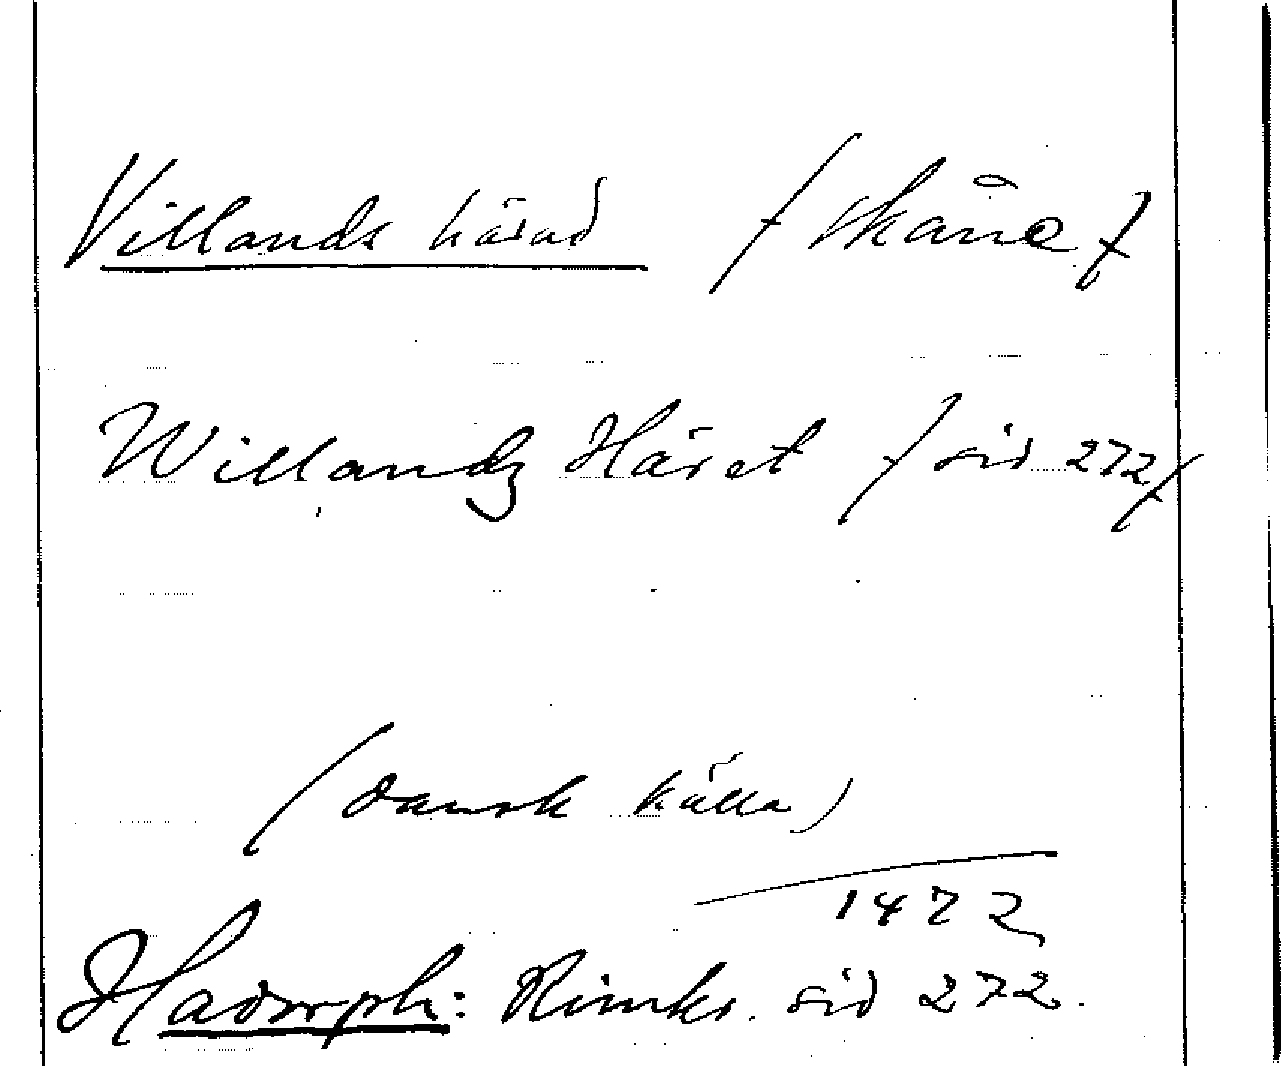 Villands härad /Skåne/
Willandz Häret /sid 272/
(dansk källa)
1472
Hadorph: Rimkr. sid 272.